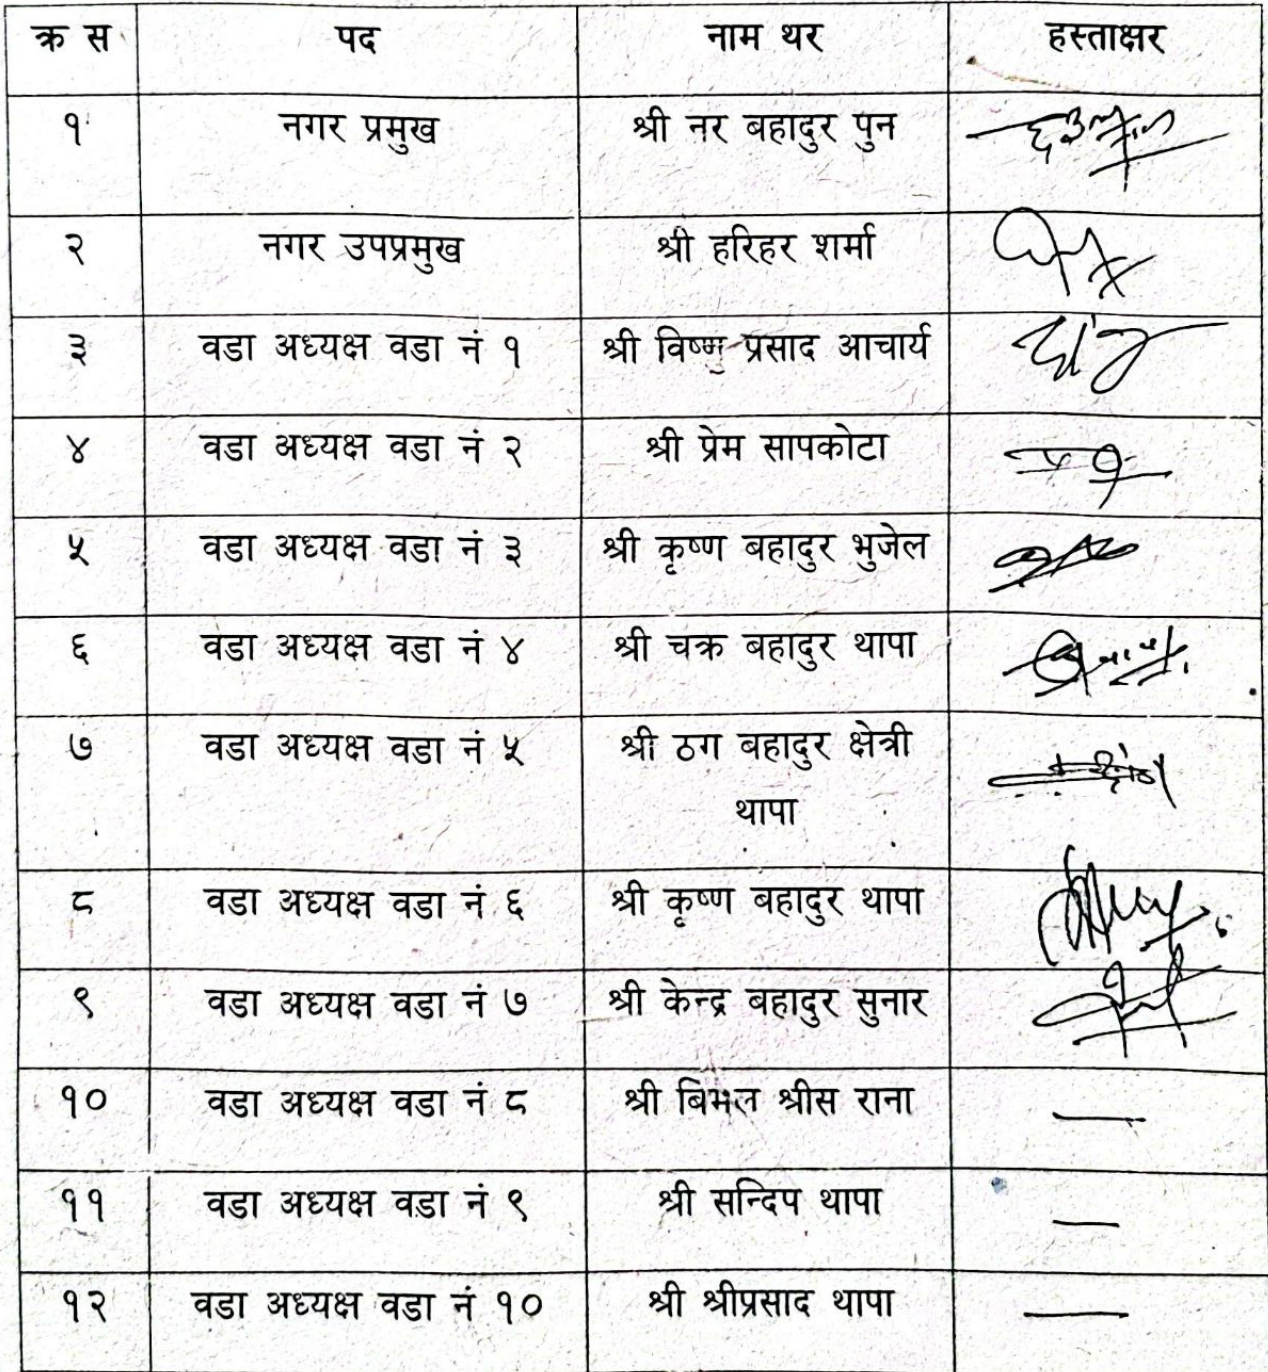 क्र स पद नाम थर हस्ताक्षर
१ नगर प्रमुख श्री नर बहादुर पुन
२ नगर उपप्रमुख श्री हरिहर शर्मा
३ वडा अध्यक्ष वडा नं १ श्री विष्णु प्रसाद आचार्य
४ वडा अध्यक्ष वडा नं २ श्री प्रेम सापकोटा
५ वडा अध्यक्ष वडा नं ३ श्री कृष्ण बहादुर भुजेल
६ वडा अध्यक्ष वडा नं ४ श्री चक्र बहादुर थापा
७ वडा अध्यक्ष वडा नं ५ श्री ठग बहादुर क्षेत्री
थापा
८ वडा अध्यक्ष वडा नं ६ श्री कृष्ण बहादुर थापा
९ वडा अध्यक्ष वडा नं ७ श्री केन्द्र बहादुर सुनार
१० वडा अध्यक्ष वडा नं ८ श्री बिमल श्रीस राना —
११ वडा अध्यक्ष वडा नं ९ श्री सन्दिप थापा —
१२ वडा अध्यक्ष वडा नं १० श्री श्रीप्रसाद थापा —